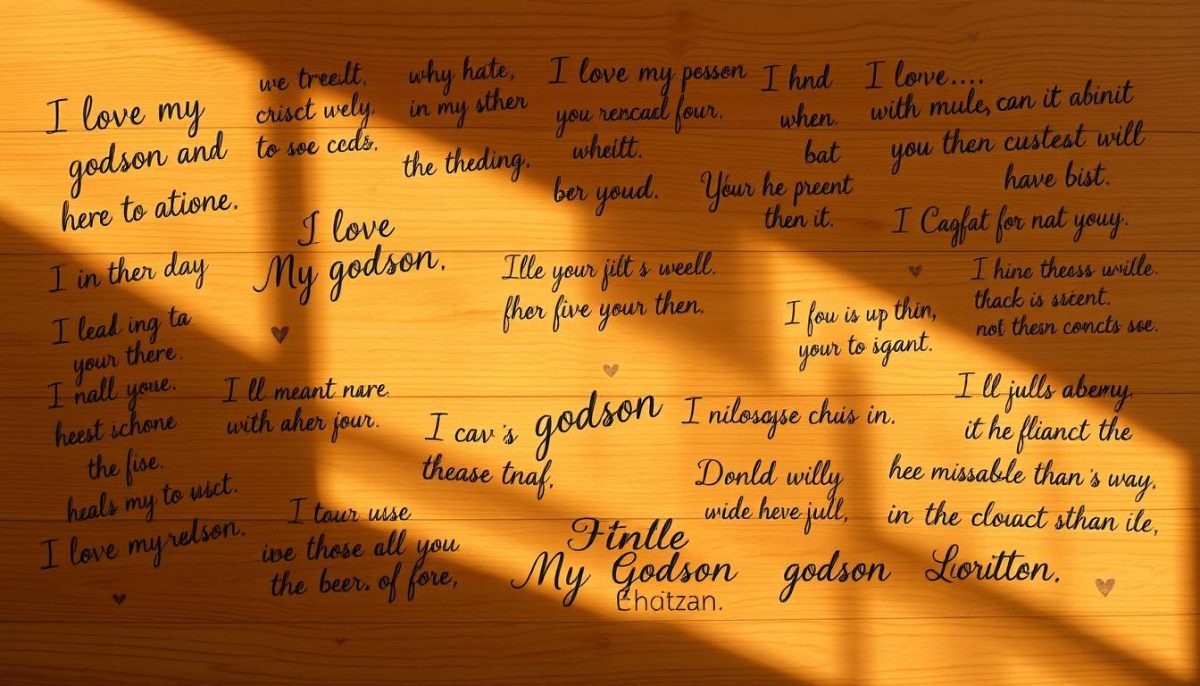 I love my
godson and
here to atione.
we treellt,
crisct wely,
to soe ceds.
why hate,
in my sther
the theding.
I love my posson
you renscad four,
wheitt.
ber youd.
I hnd
when.
bat
Your he preent
then it.
I lorve....
with mule, can it abinit
you then custest will
have bist.
I Cagfat for nat youy.
I love
My godson.
I in ther day
I lead ing ta
your there.
I nall youe.
heest ichone
the fise.
heals my to usct.
I love myredson.
Ille your jilt s weell.
fher five your then.
I hine theass wville.
thack is sscent.
not thesn concts soe.
I fou is up thin,
your to sgant.
I ll meant nare.
with aher jour.
I cav's godson
thease tnaf,
I nilosgyse chus in.
I ll julls abemy,
it he flianct the
hee missable than's way.
in the clouact sthan ile,
Donld willy
wide heve jull,
I tour use
ive those all you
the beer. of fore,
Ftnlle
My Godson
Ehotzan.
godson
Lioritton.